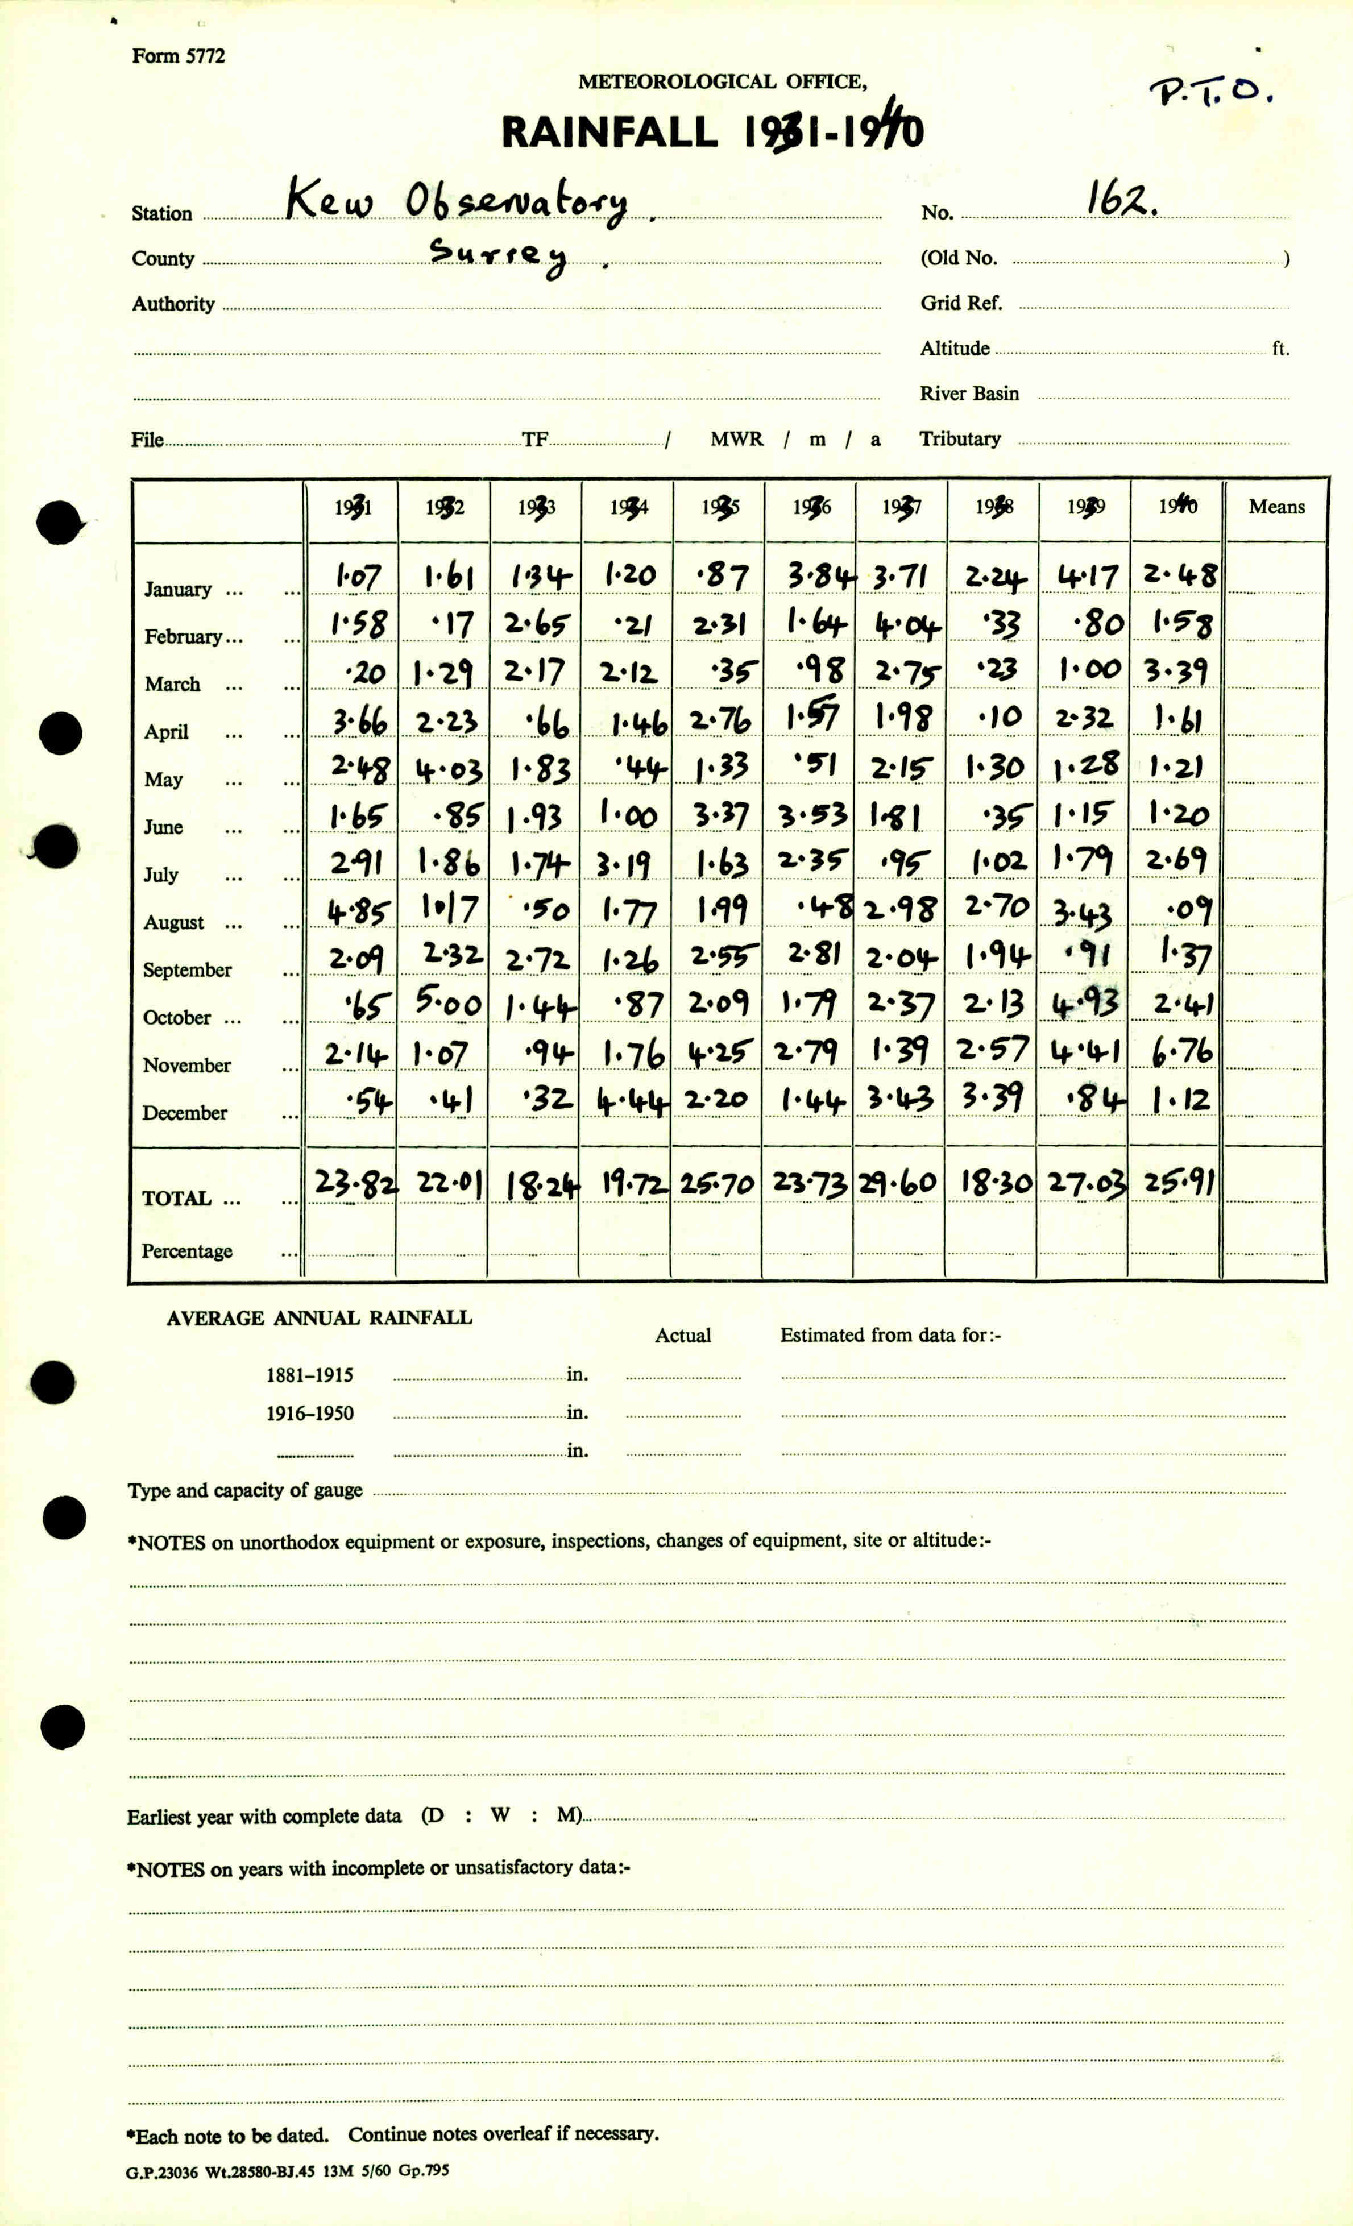 Form 5772
METEOROLOGICAL OFFICE,
P.T.O.
RAINFALL 1931-1940
Station Kew Observatory. No. 162.
County Surrey. (Old No. )
Authority Grid Ref.
Altitude ft.
River Basin
File TF / MWR / m / a Tributary
1931 1932 1933 1934 1935 1936 1937 1938 1939 1940 Means
January ... ... 1.07 1.61 1.34 1.20 .87 3.84 3.71 2.24 4.17 2.48
February ... ... 1.58 .17 2.65 .21 2.31 1.64 4.04 .33 .80 1.58
March ... ... .20 1.29 2.17 2.12 .35 .98 2.75 .23 1.00 3.39
April ... ... 3.66 2.23 .66 1.46 2.76 1.57 1.98 .10 2.32 1.61
May ... ... 2.48 4.03 1.83 .44 1.33 .51 2.15 1.30 1.28 1.21
June ... ... 1.65 .85 1.93 1.00 3.37 3.53 1.81 .35 1.15 1.20
July ... ... 2.91 1.86 1.74 3.19 1.63 2.35 .95 1.02 1.79 2.69
August ... ... 4.85 1.17 .50 1.77 1.99 .48 2.98 2.70 3.43 .09
September ... 2.09 2.32 2.72 1.26 2.55 2.81 2.04 1.94 .91 1.37
October ... ... .65 5.00 1.44 .87 2.09 1.79 2.37 2.13 4.93 2.41
November ... 2.14 1.07 .94 1.76 4.25 2.79 1.39 2.57 4.41 6.76
December ... .54 .41 .32 4.44 2.20 1.44 3.43 3.39 .84 1.12
TOTAL ... ... 23.82 22.01 18.24 19.72 25.70 23.73 29.60 18.30 27.03 25.91
Percentage ...
AVERAGE ANNUAL RAINFALL
Actual Estimated from data for:-
1881-1915 in.
1916-1950 in.
in.
Type and capacity of gauge
*NOTES on unorthodox equipment or exposure, inspections, changes of equipment, site or altitude:-
Earliest year with complete data (D : W : M)
*NOTES on years with incomplete or unsatisfactory data:-
*Each note to be dated. Continue notes overleaf if necessary.
G.P.23036 Wt.28580-BJ.45 13M 5/60 Gp.795